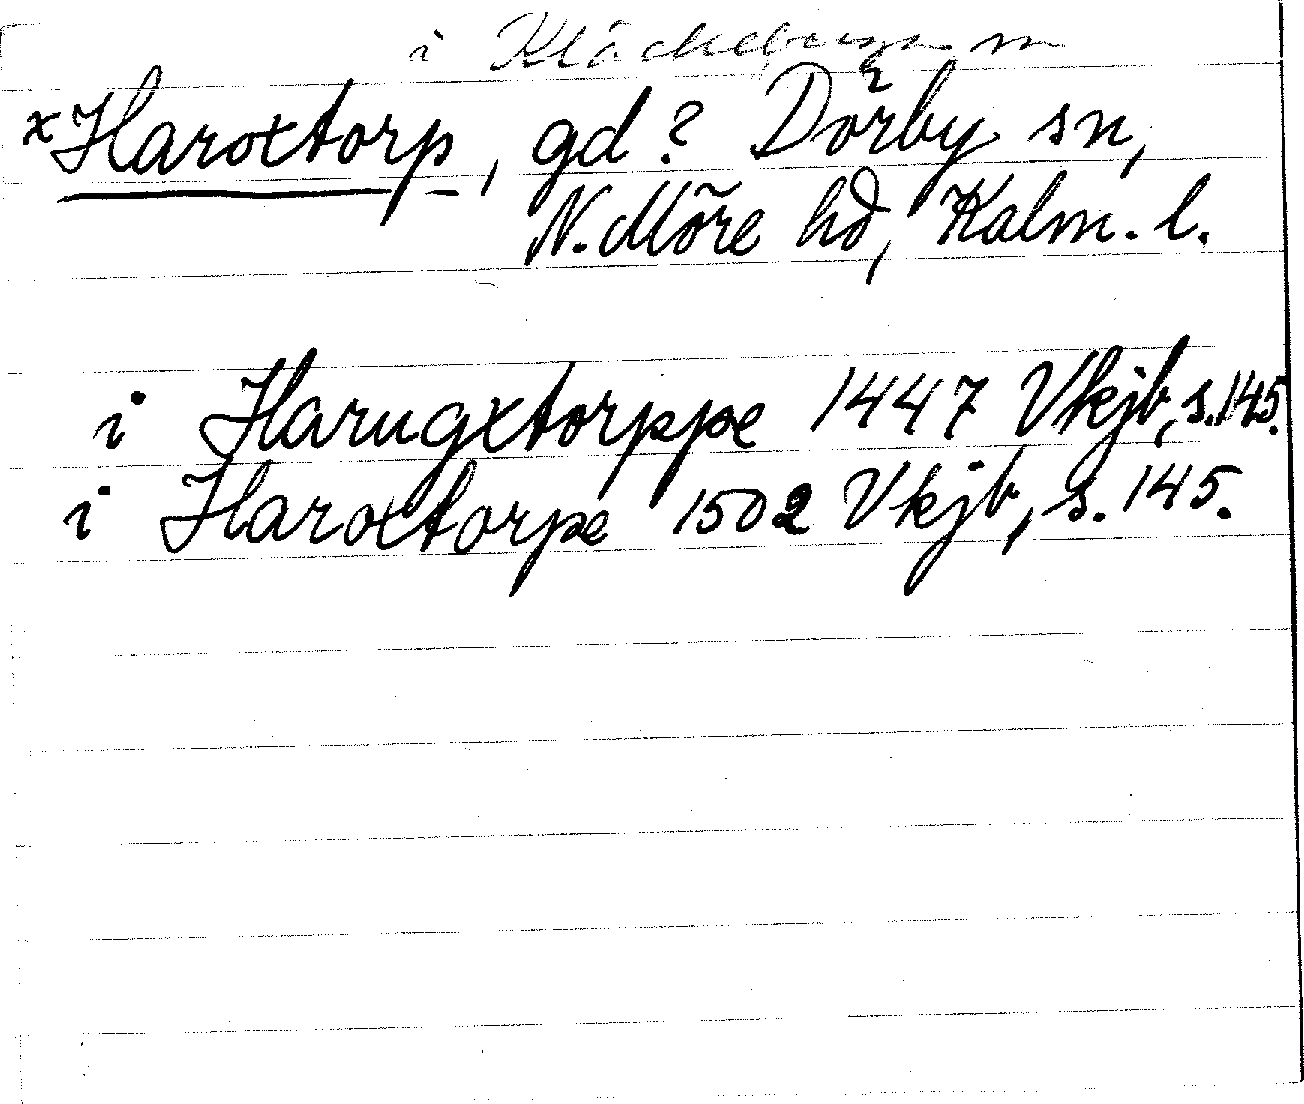 i Kläckeberga sn
x Haroxtorp, gd? Dörby sn,
N. Möre hd, Kalm. l.
i Harugxtorppe 1447 Vkjb, s. 145.
i Haroxtorpe 1502 Vkjb, s. 145.